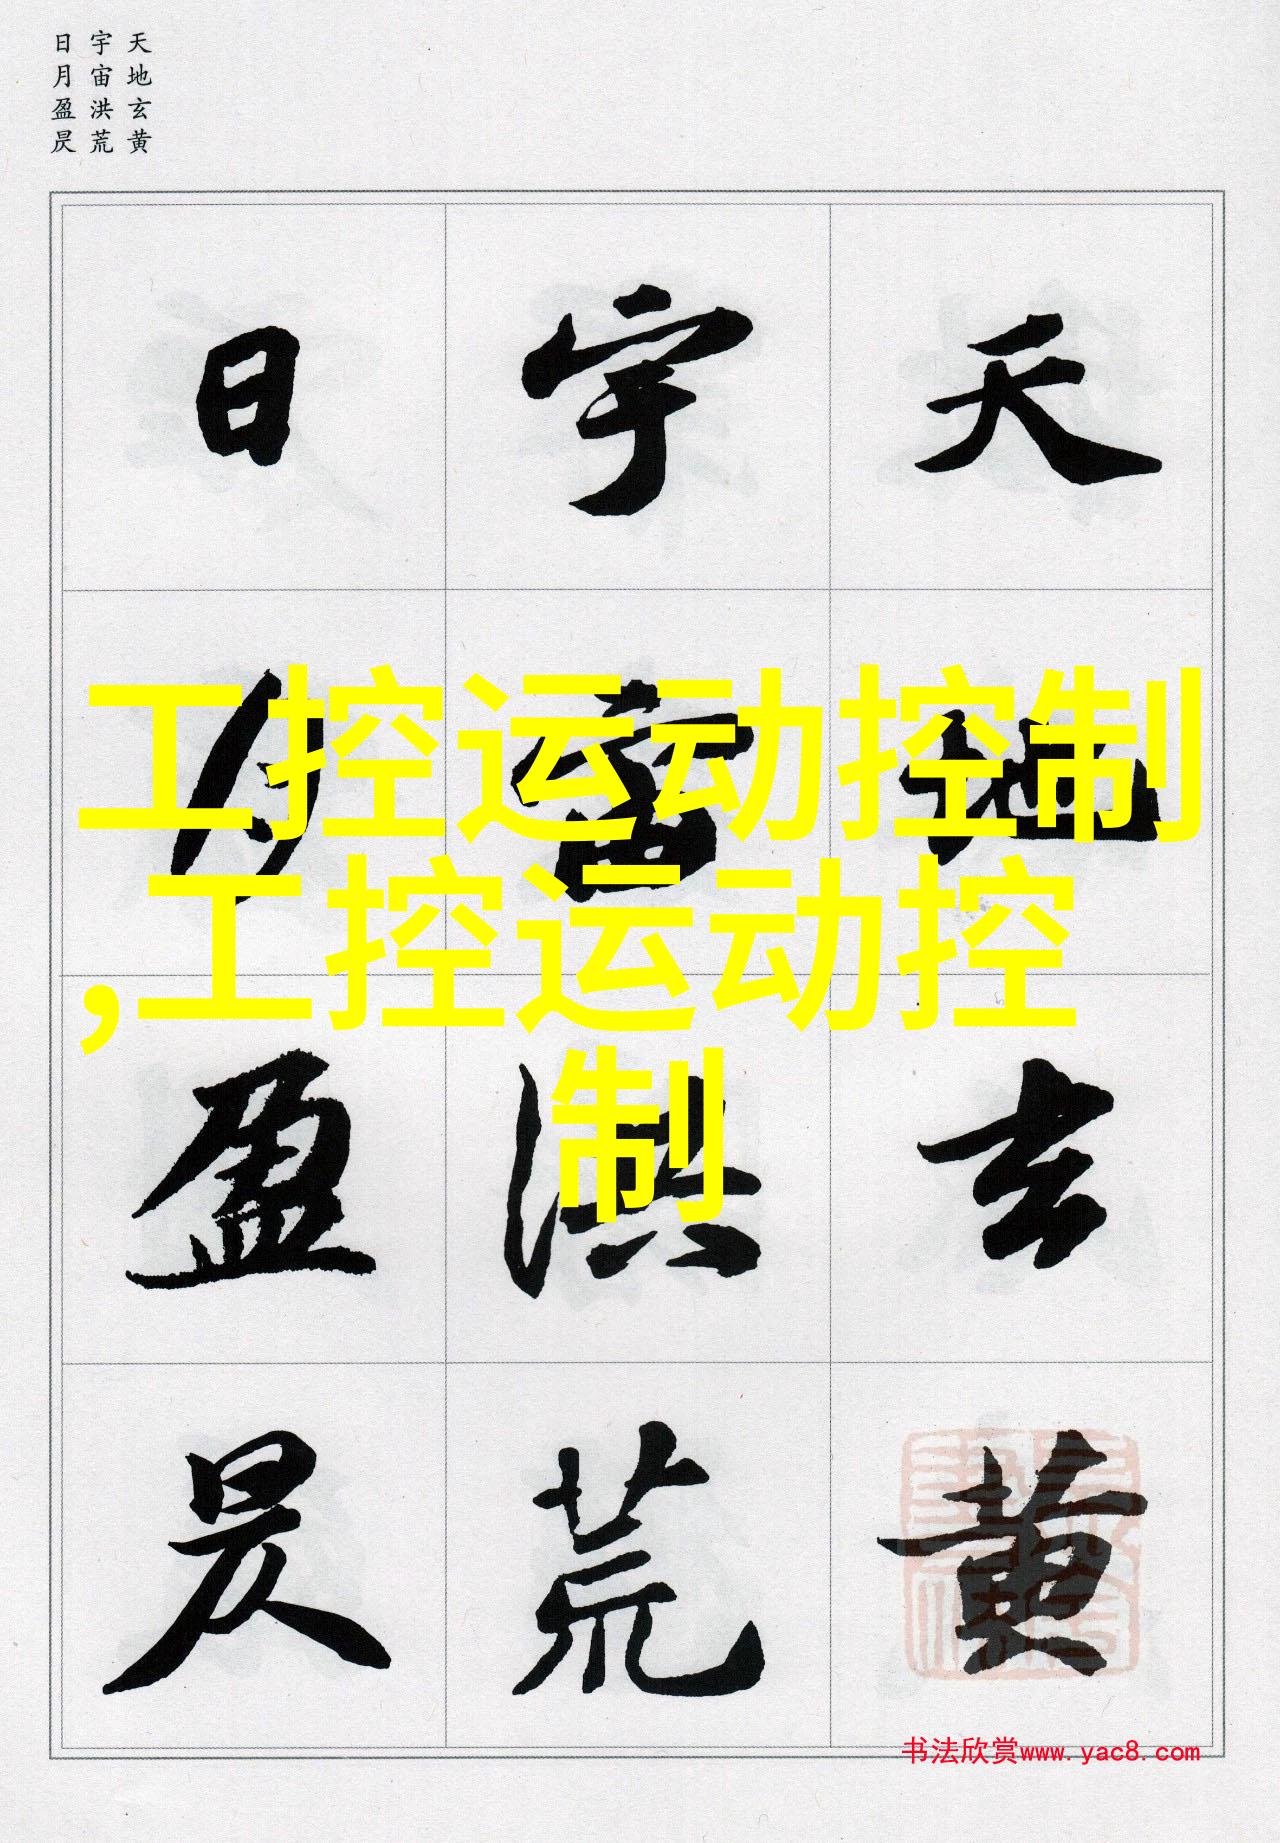 天地玄黄
宇宙洪荒
日月盈昃
天地玄黄
宇宙洪荒
日月盈昃
工控运动控制
,工控运动控
制
书法欣赏www.yac8.com